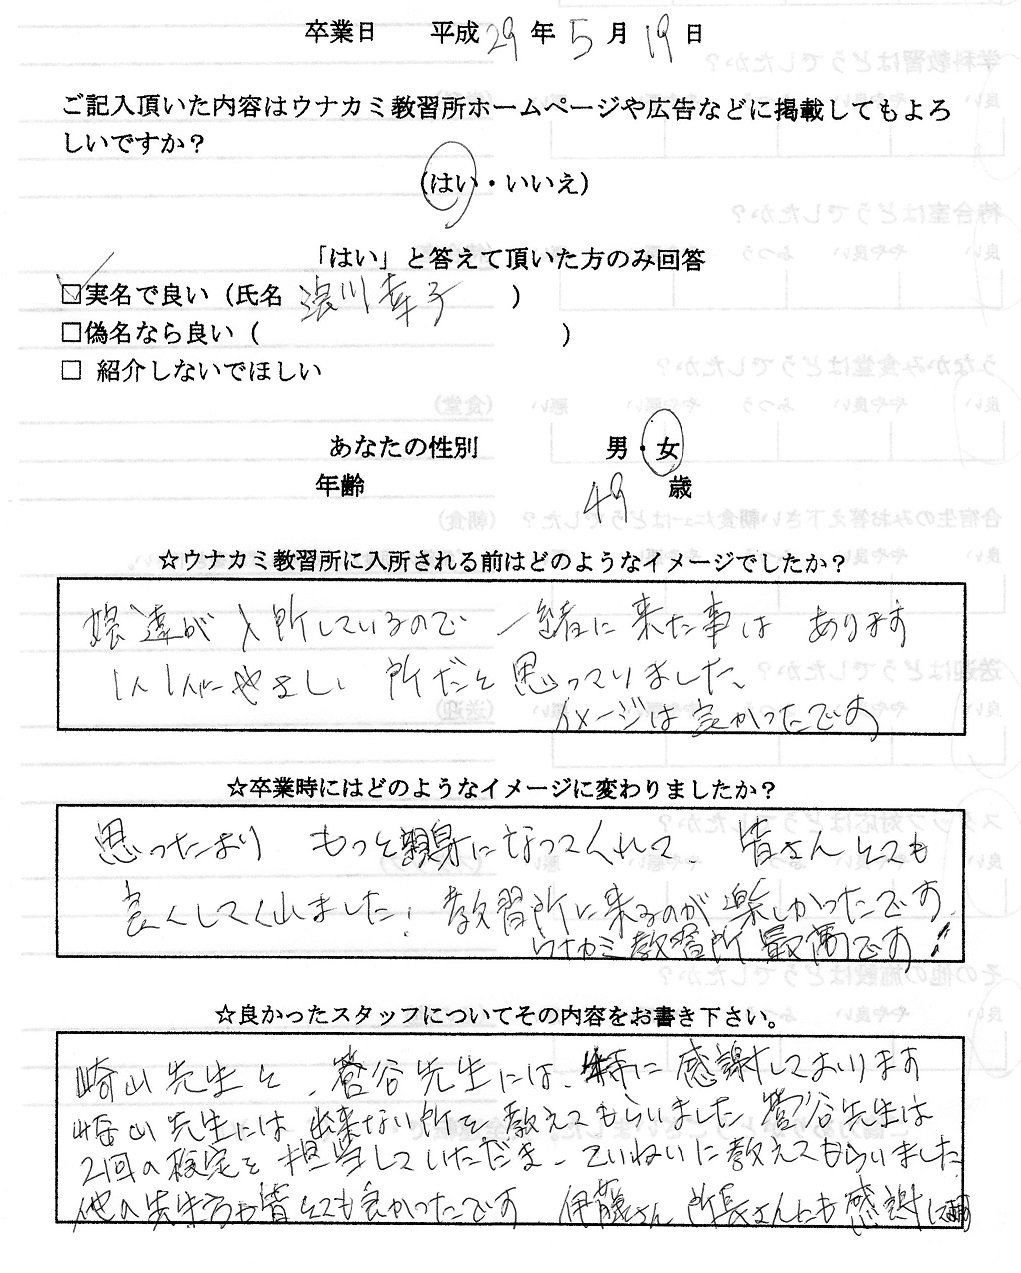 卒業日 平成29年5月19日
ご記入頂いた内容はウナカミ教習所ホームページや広告などに掲載してもよろ
しいですか？
(はい・いいえ)
「はい」と答えて頂いた方のみ回答
☑実名で良い（氏名 澁川幸子 ）
□偽名なら良い（ ）
□ 紹介しないでほしい
あなたの性別 男・女
年齢 49 歳
☆ウナカミ教習所に入所される前はどのようなイメージでしたか？
娘達が入所しているので 一緒に来た事は あります
1人1人にやさしい 所だと思っていました。
イメージは良かったです
☆卒業時にはどのようなイメージに変わりましたか？
思ったより もっと親身になってくれて、 皆さんとても
良くしてくれました！ 教習所に来るのが楽しかったです。
ウナカミ教習所最高です！！
☆良かったスタッフについてその内容をお書き下さい。
崎山先生と、菅谷先生には、特に感謝しております
崎山先生には 出来ない所を教えてもらいました 菅谷先生は
2回の検定を担当していただき、ていねいに教えてもらいました
他の先生方も皆とても良かったです 伊藤さん 所長さんにも感謝
学科教習はどうでしたか？
待合室はどうでしたか？
うなかみ食堂はどうでしたか？
良い やや良い ふつう やや悪い 悪い (食堂)
合宿生のみお答え下さい朝食メニューはどうでした？ (朝食)
送迎はどうでしたか？
良い やや良い ふつう やや悪い 悪い (送迎)
スタッフ対応はどうでしたか？
その他の施設はどうでしたか？